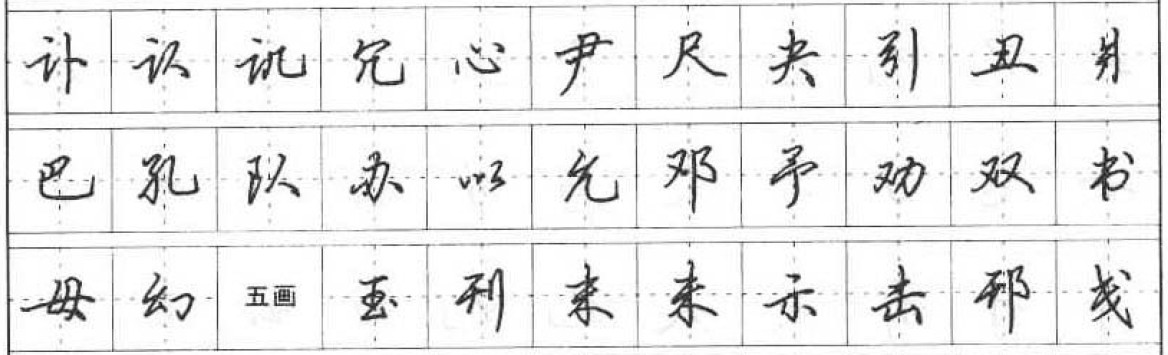 讣认讥冗心尹尺夬引丑爿
巴孔队办以允邓予劝双书
毋幻五画玉刊末未示击邗戋